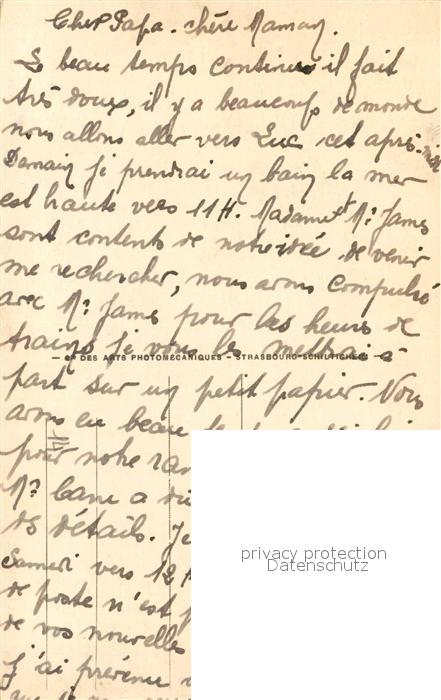 Cher Papa. chère Maman.
Le beau temps continue il fait
très doux, il y a beaucoup de monde
nous allons aller vers Luc cet après-midi
Demain je prendrai un bain la mer
est haute vers 11H. Madame et Mr James
sont contents de notre idée de venir
me rechercher, nous avons compulsé
avec Mr James pour les heures de
trains je vous les mettrai à
— Cie DES ARTS PHOTOMÉCANIQUES - STRASBOURG-SCHILTIGHEIM —
part sur un petit papier. Nous
avons eu beau
pour notre
Mr a
des détails. Je
Samedi vers 12
de poste n'est
de vos nouvelles
J'ai prévenu
privacy protection
Datenschutz